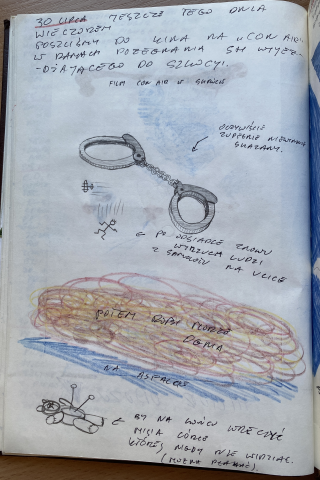 30 LIPCA JESZCZE TEGO DNIA
WIECZOREM
POSZLIŚMY DO KINA NA "CON AIR"
W RAMACH POŻEGNANIA SH WYJEŻ-
-DŻAJĄCEGO DO SZKOCJI.
FILM CON AIR W SKRÓCIE
OCZYWIŚCIE
ZUPEŁNIE NIEWINNIE
SKAZANY.
← PO ODSIADCE ZNOWU
WYRZUCA LUDZI
Z SAMOLOTU NA ULICE
POTEM ROBI MOKRĄ
PLAMĘ
NA ASFALCIE
← BY NA KOŃCU WRĘCZYĆ
MISIA CÓRCE
KTÓREJ NIGDY NIE WIDZIAŁ.
(MOŻNA PŁAKAĆ).